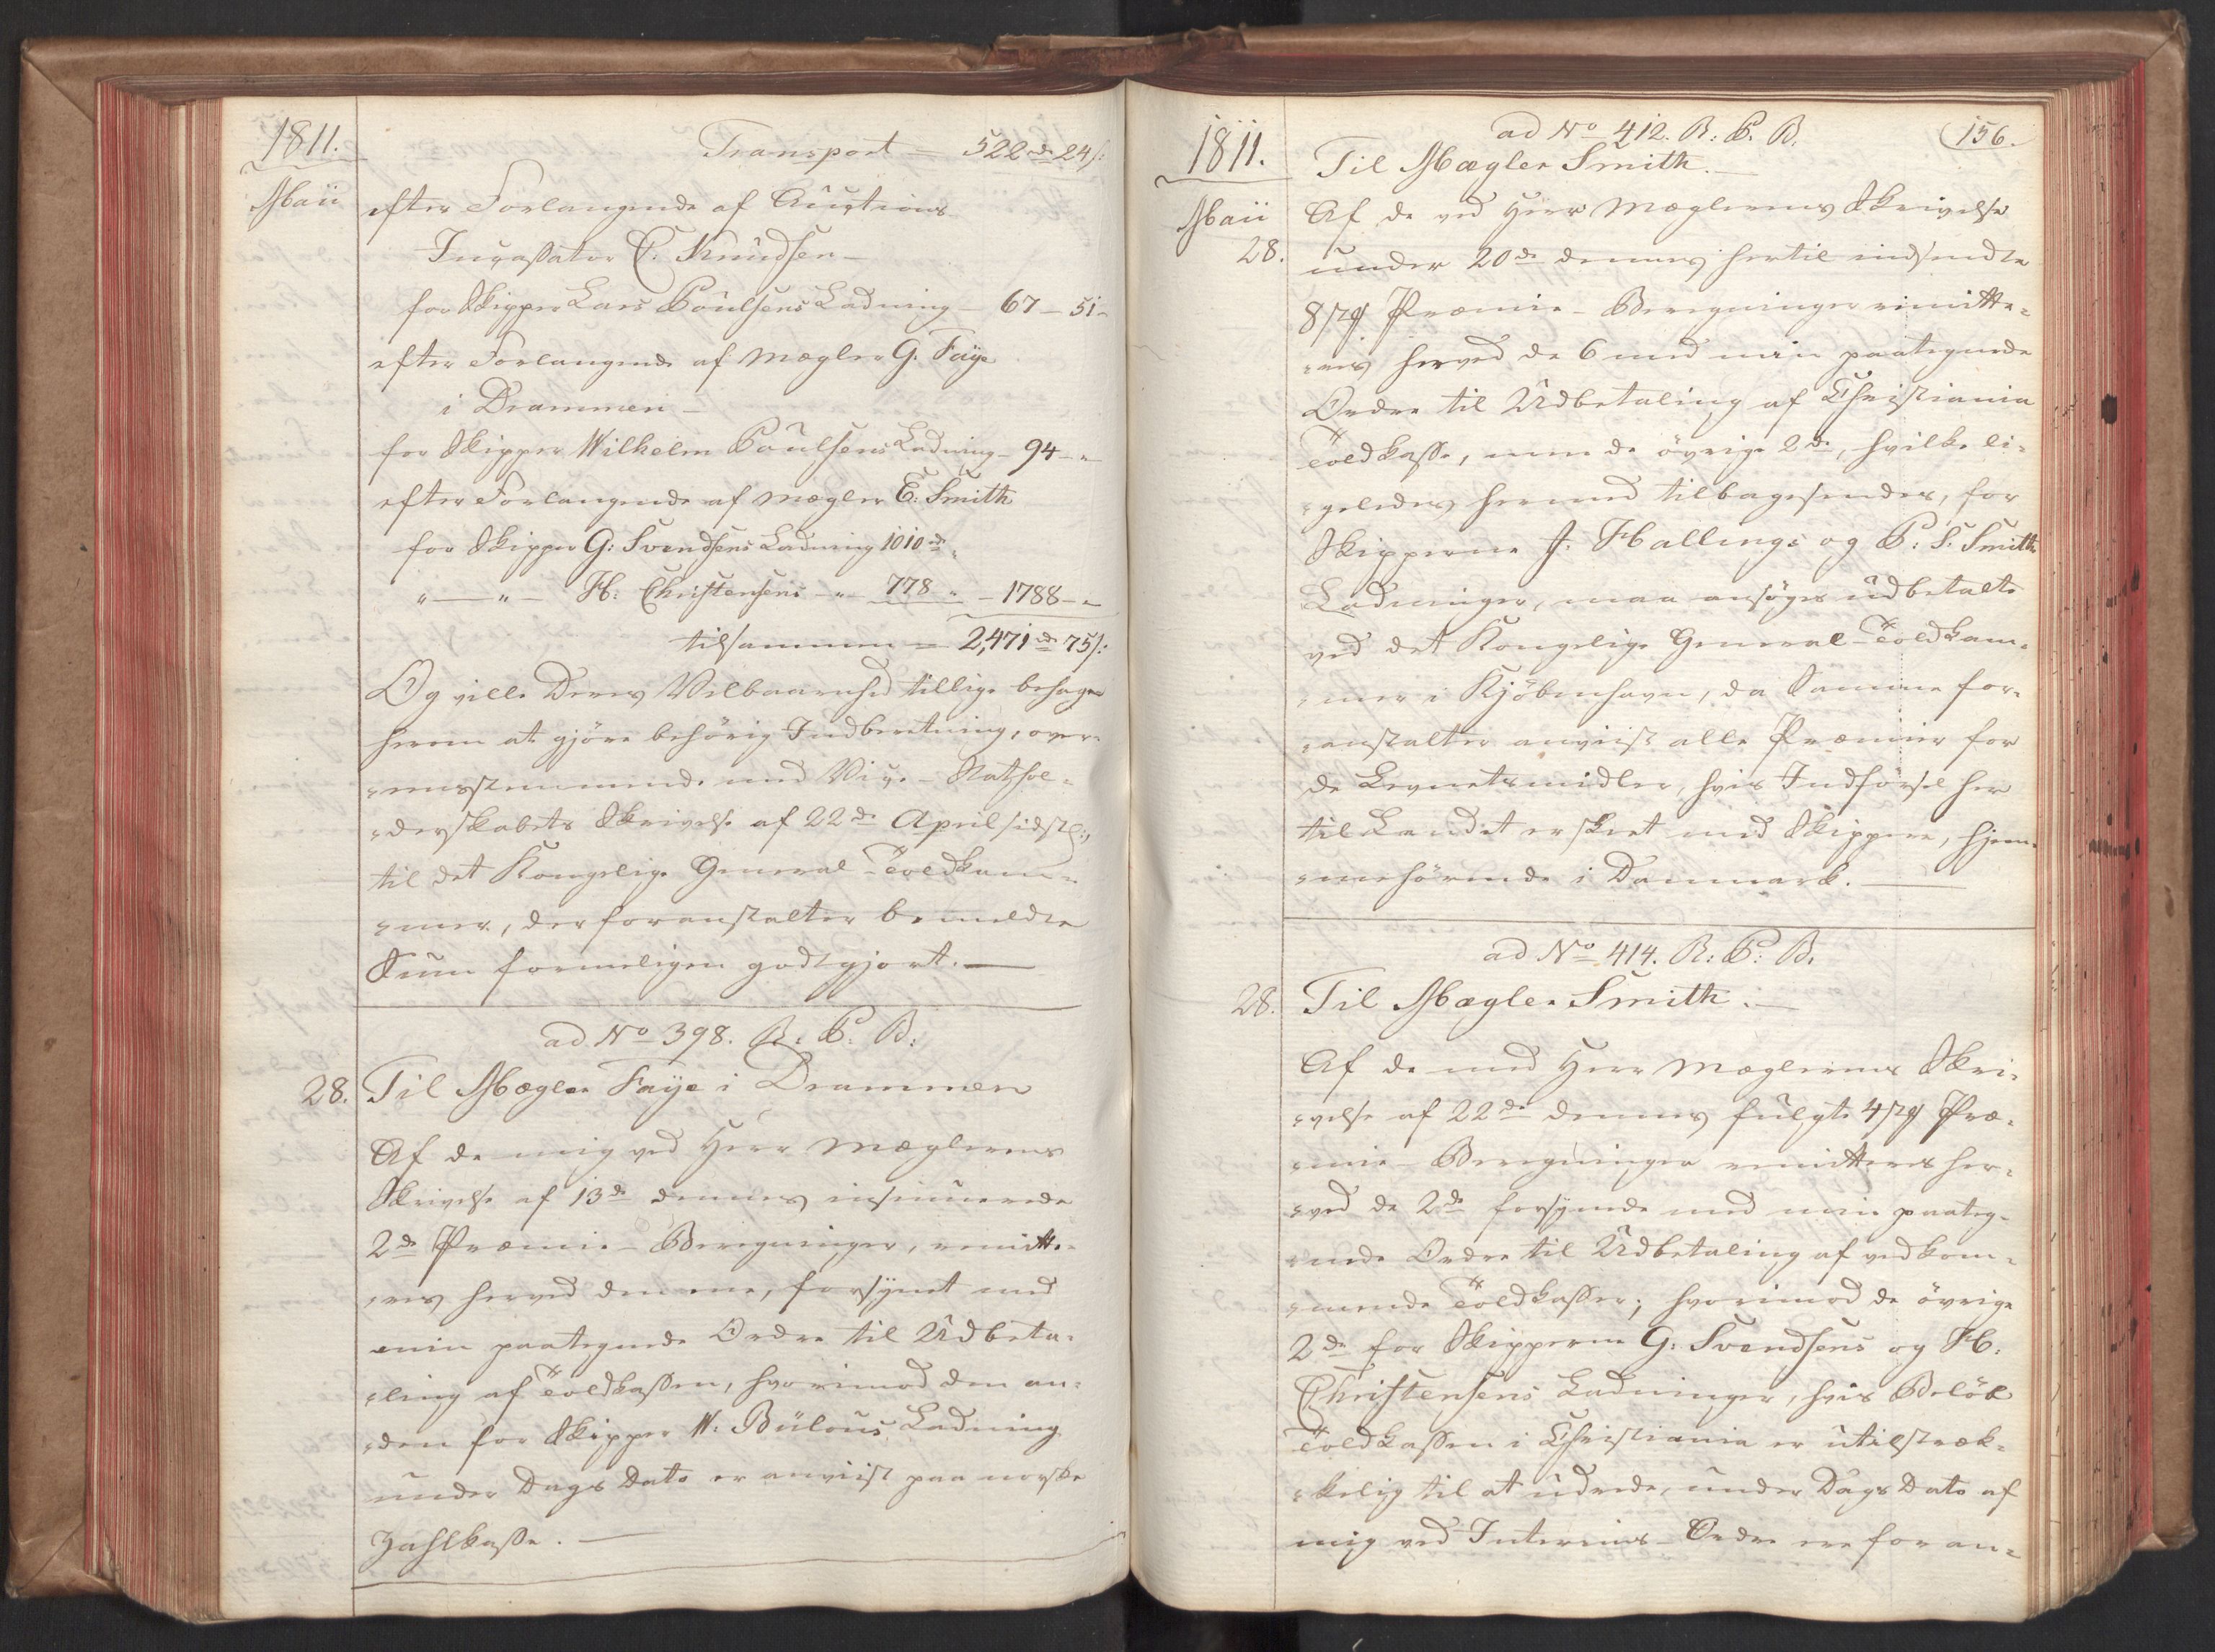 1811.
Transport = 522 rd 24 s:
Maii
efter Forlangende af Auctions
Incassator C. Knudsen –
for Skipper Lars Poulsens Ladning – 67 – 51 –
efter Forlangende af Mægler G. Faÿe
i Drammen –
for Skipper Wilhelm Poulsens Ladning – 94 – "
efter Forlangende af Mægler E. Smith
for Skipper G: Svendsens Ladning 1010 rd "
" — " — H: Christensens – " – 778 " – 1788 – "
tilsammen = 2,471 rd 75 s:
Og ville Deres Velbaarenhed tillige behage
herom at gjöre behörig Indberetning, over-
eensstemmende med Vice-Stathol-
derskabets Skrivelse af 22de April sidstl:,
til det Kongelige General-Toldkam-
mer, der foranstalter bemeldte
Sum formeligen godtgjort. —
ad No 398. R: P: B:
28. Til Mægler Faÿe i Drammen
Af de mig ved Herr Mæglerens
Skrivelse af 13de dennes insinuerede
2de Præmie-Beregninger, remitte-
res herved den ene, forsÿnet med
min paategnede Ordre til Udbeta-
ling af Toldkassen, hvorimod den an-
den for Skipper W: Bülows Ladning
under Dags Dato er anviist paa norske
Zahlkasse. —
156.
1811.
ad No 412. R: P. B.
Til Mægler Smith. —
Maii
28.
Af de ved Herr Mæglerens Skrivelse
under 20de dennes hertil indsendte
8 stk Præmie-Beregninger remitte-
res herved de 6 med min paategnede
Ordre til Udbetaling af Christiania
Toldkasse, men de övrige 2de, hvilke li-
geledes hermed tilbagesendes, for
Skipperne J. Hallings og P: S. Smiths
Ladninger, maa ansöges udbetalte
ved det Kongelige General-Toldkam-
mer i Kjöbenhavn, da Samme for-
anstalter anviist alle Præmier for
de Levnetsmidler, hvis Indförsel her
til Landet er skeet med Skippere, hjem-
mehörende i Danmark. —
ad No 414. R: P: B.
28. Til Mægler Smith. —
Af de med Herr Mæglerens Skri-
velse af 22de dennes fulgte 4 stk Præ-
mie-Beregninger remitteres her-
ved de 2de forsÿnede med min paateg-
nede Ordre til Udbetaling af vedkom-
mende Toldkasser; hvorimod de övrige
2de for Skipperne G: Svendsens og H:
Christensens Ladninger, hvis Belöb
Toldkassen i Christiania er utilstræk-
kelig til at udrede, under Dags Dato af
mig ved Interims-Ordre ere foran-